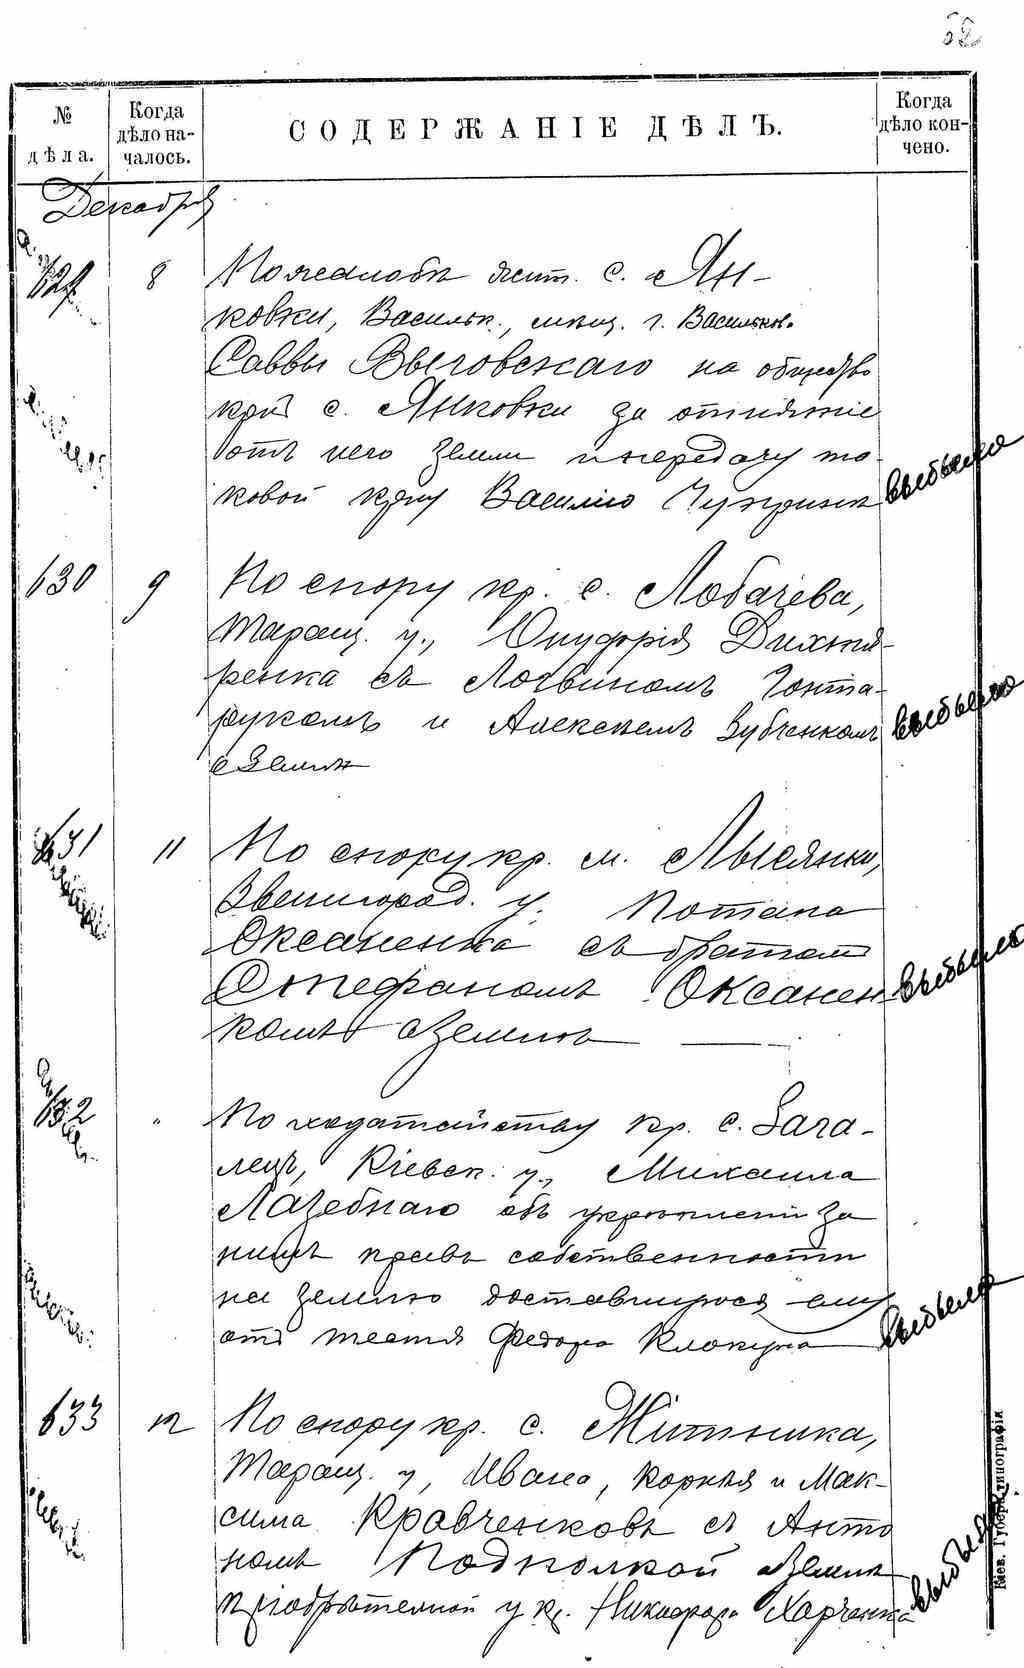 52
№
дѣла.
Когда
дѣло на-
чалось.
СОДЕРЖАНІЕ ДѢЛЪ.
Когда
дѣло кон-
чено.
Декабря
629 8 По жалобѣ жит. с. Ян-
ковки, Васильк., мѣщ. г. Васильков.
Саввы Выговскаго на общество
крест с. Янковки за отнятіе
отъ него земли и передачу та-
ковой кр-ну Василію
выбыло
630 9 По спору кр. с. Лобачева,
Таращ. у., Онуфрія Дихтя-
ренка съ Логвиномъ Гонта-
рукомъ и Алексѣемъ Зубченкомъ
о землѣ
выбыло
631 11 По спору кр. м. Лысянки,
Звенигород. у. Потапа
Оксаненка съ братомъ
Стефаномъ Оксанен-
комъ о землѣ
выбыло
632 " По ходатайству кр. с. Гага-
лецъ, Кіевск. у., Михаила
Лазебнаго объ укрѣпленіи за
нимъ правъ собственности
на землю доставшуюся ему
отъ тестя Федора Клокуна
выбыло
633 12 По спору кр. с. Жітника,
Таращ. у, Ивана, Корнѣя и Мак-
сима Кравченковъ съ Анто
номъ Подполкой о землѣ
пріобрѣтенной у кр. Никифора Харченка
выбыло
Кіев. Губерн. типографія